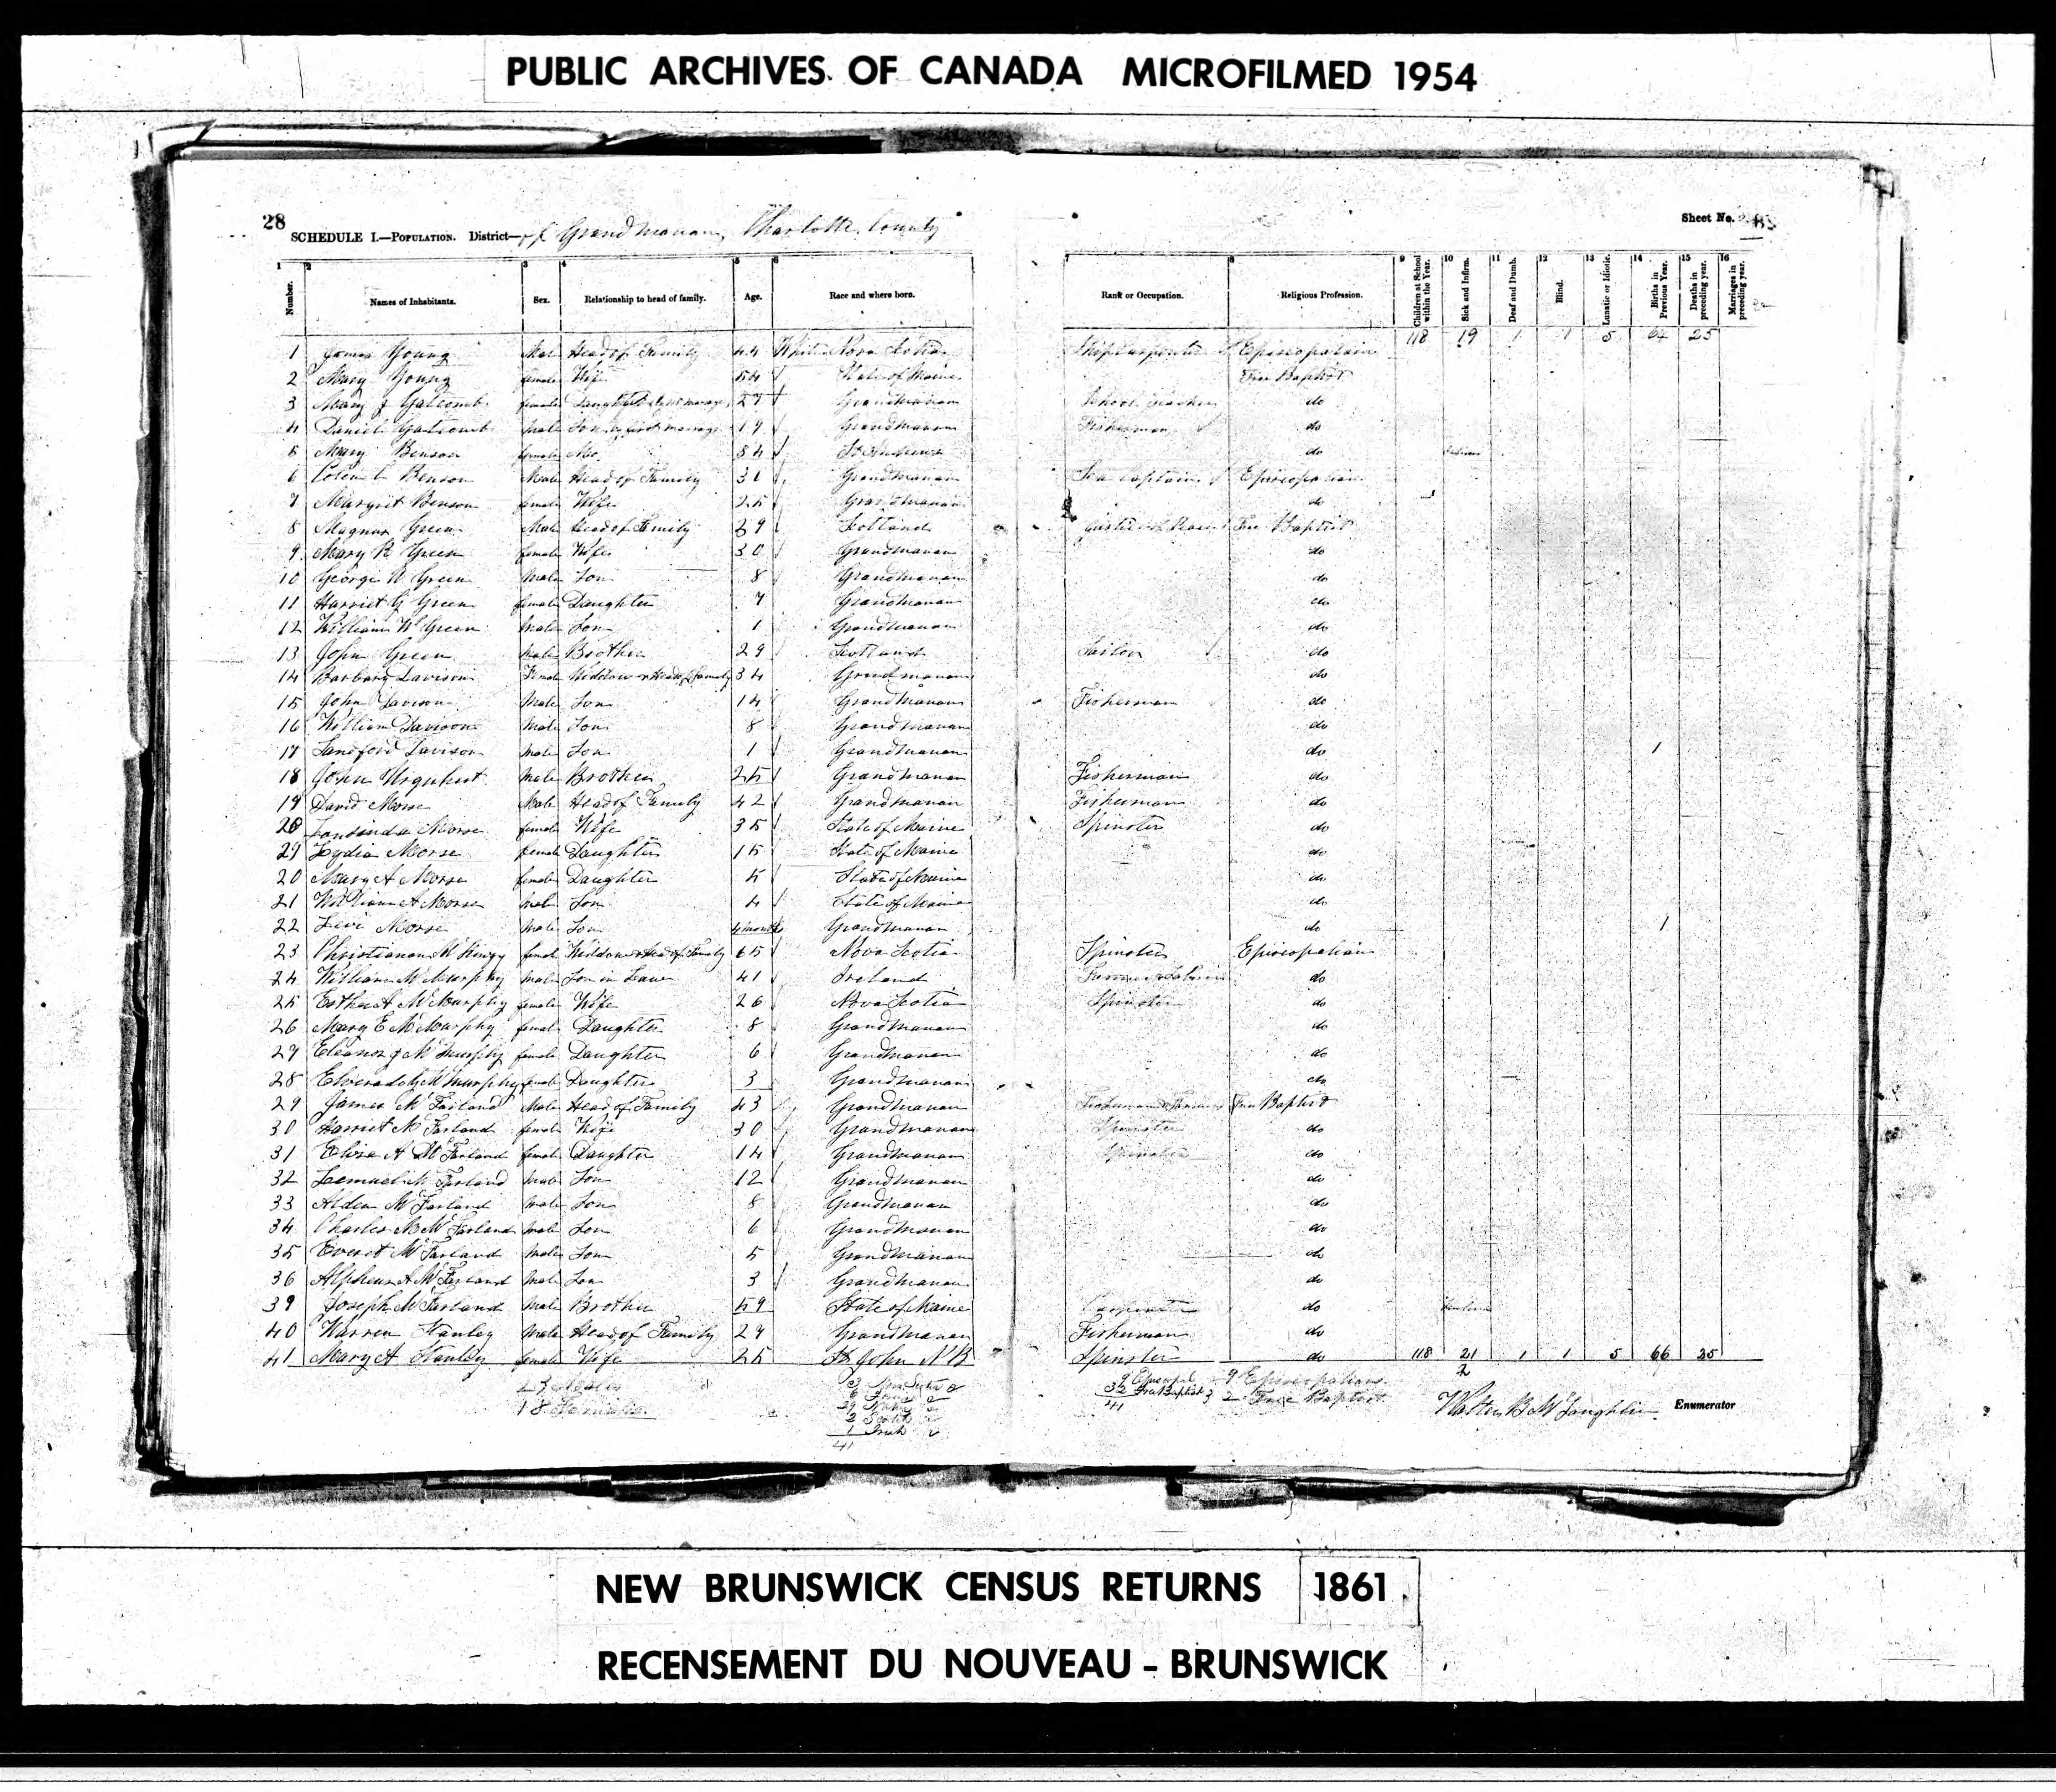 PUBLIC ARCHIVES OF CANADA MICROFILMED 1954
28 SCHEDULE I.—POPULATION. District—of Grand Manan, Charlotte County Sheet No.
1 2 3 4 5 6 7 8 9 10 11 12 13 14 15 16
Number. Names of Inhabitants. Sex. Relationship to head of family. Age. Race and where born. Rank or Occupation. Religious Profession. Children at School within the Year. Sick and Infirm. Deaf and Dumb. Blind. Lunatic or Idiotic. Births in Previous Year. Deaths in preceding year. Marriages in preceding year.
118 19 1 1 5 64 25
1 James Young Male Head of Family 44 White Nova Scotia Ship Carpenter Episcopalian
2 Mary Young female Wife 54 State of Maine Free Baptist
3 Mary J Galcomb female Daughter 27 Grandmanan School Teacher do
4 Daniel Galcomb male Son by first marriage 19 Grandmanan Fisherman do
5 Mary Benson female 54 St Andrews do
6 Benson Male Head of Family 31 Grandmanan Sea Captain Episcopalian
7 Margrit Benson female Wife 25 Grandmanan do
8 Magnus Green Male Head of Family 39 Scotland Free Baptist
9 Mary R Green female Wife 30 Grandmanan do
10 George W Green Male Son 8 Grandmanan do
11 Harriet G Green female Daughter 7 Grandmanan do
12 William W Green Male Son 1 Grandmanan do
13 John Green male Brother 29 Scotland Sailor do
14 Barbary Davison Female Widdow & Head of Family 34 Grandmanan do
15 John Davison Male Son 14 Grandmanan Fisherman do
16 William Davison Male Son 8 Grandmanan do
17 Sandford Davison male Son 1 Grandmanan do 1
18 John Urquhut male Brother 25 Grandmanan Fisherman do
19 David Morse Male Head of Family 42 Grandmanan Fisherman do
20 Morse female Wife 35 State of Maine Spinster do
29 Lydia Morse female Daughter 15 State of Maine do
20 Mary A Morse female Daughter 5 State of Maine do
21 William A Morse male Son 4 State of Maine do
22 Levi Morse male Son 4 months Grandmanan do 1
23 Christianan female Widdow & Head of Family 65 Nova Scotia Spinster Episcopalian
24 William McMurphy male Son in Law 41 Ireland do
25 Esther A McMurphy female Wife 26 Nova Scotia Spinster do
26 Mary E McMurphy female Daughter 8 Grandmanan do
27 Eleanor J McMurphy female Daughter 6 Grandmanan do
28 McMurphy female Daughter 3 Grandmanan do
29 James McFarland Male Head of Family 43 Grandmanan Free Baptist
30 Harriet McFarland female Wife 30 Grandmanan Spinster do
31 Eliza A McFarland female Daughter 14 Grandmanan Spinster do
32 Lemuel McFarland male Son 12 Grandmanan do
33 Alden McFarland male Son 8 Grandmanan do
34 Charles McFarland male Son 6 Grandmanan do
35 Everit McFarland male Son 5 Grandmanan do
36 Alpheus A McFarland Male Son 3 Grandmanan do
39 Joseph McFarland male Brother 59 State of Maine Carpenter do
40 Warren Stanley male Head of Family 27 Grandmanan Fisherman do
41 Mary A Stanley female Wife 25 St John NB Spinster do 118 21 1 1 5 66 25
23 Males
18 Females
41
9 Episcopalians
32 Free Baptist
41
2
Walter B McLaughlin Enumerator
NEW BRUNSWICK CENSUS RETURNS 1861
RECENSEMENT DU NOUVEAU-BRUNSWICK